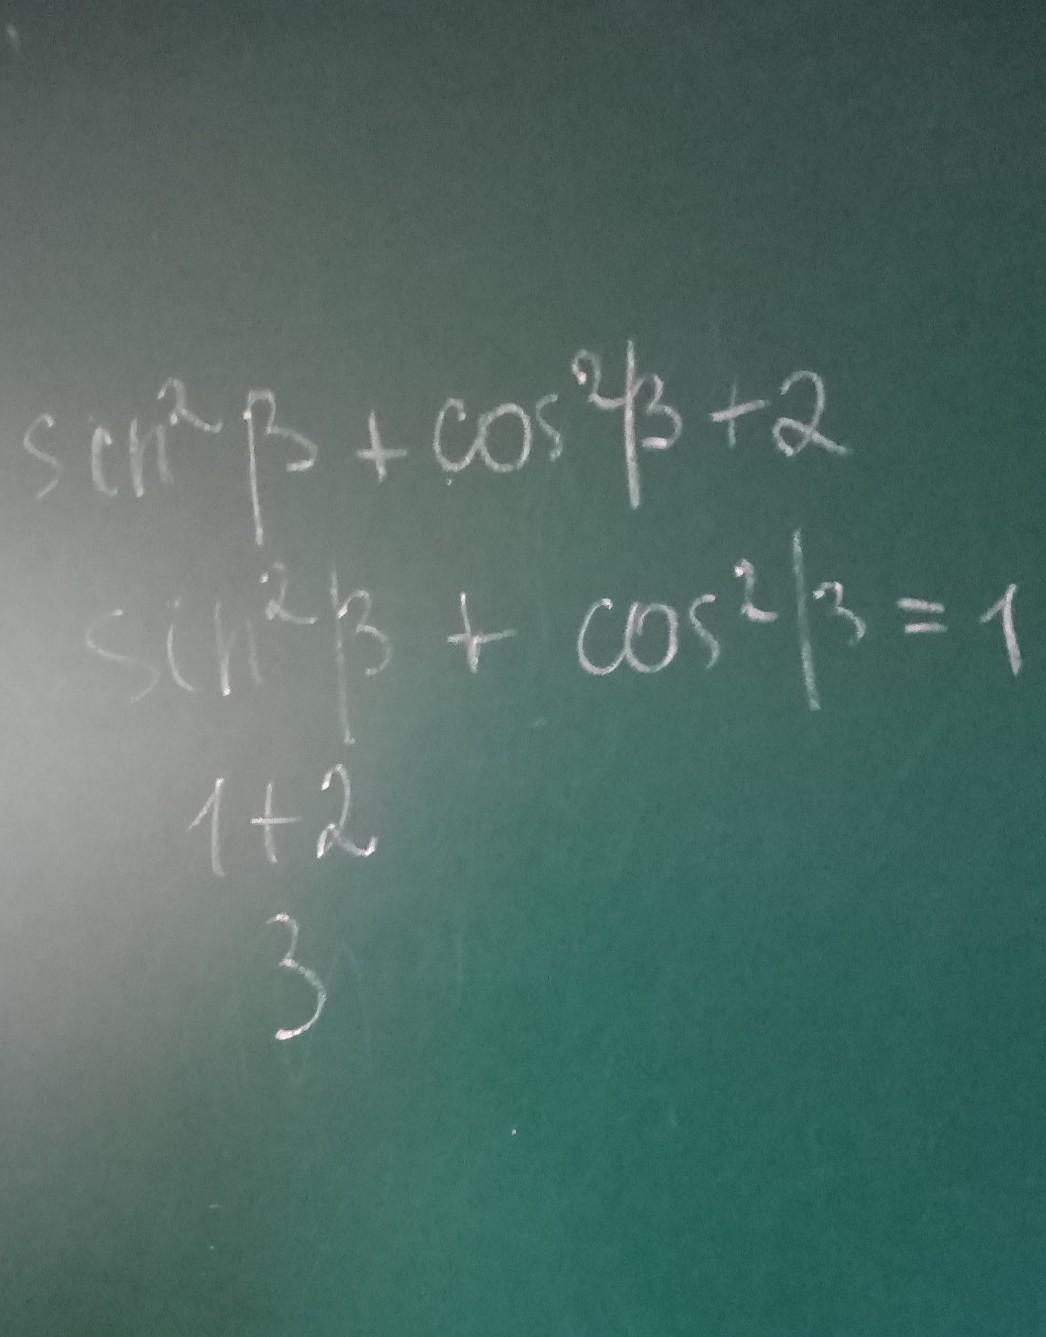 sin²β + cos²β + 2
sin²β + cos²β = 1
1+2
3